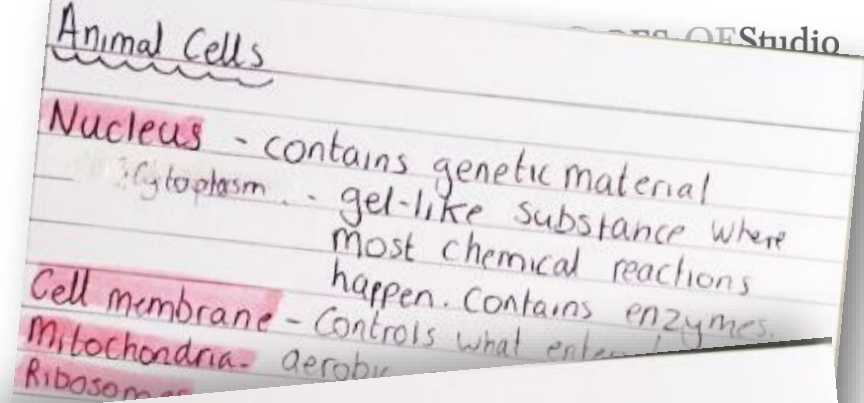 OF Studio
Animal Cells
Nucleus - contains genetic material
Cytoplasm - gel-like substance where
most chemical reactions
happen. Contains enzymes.
Cell membrane - Controls what
Mitochondria - aerobic